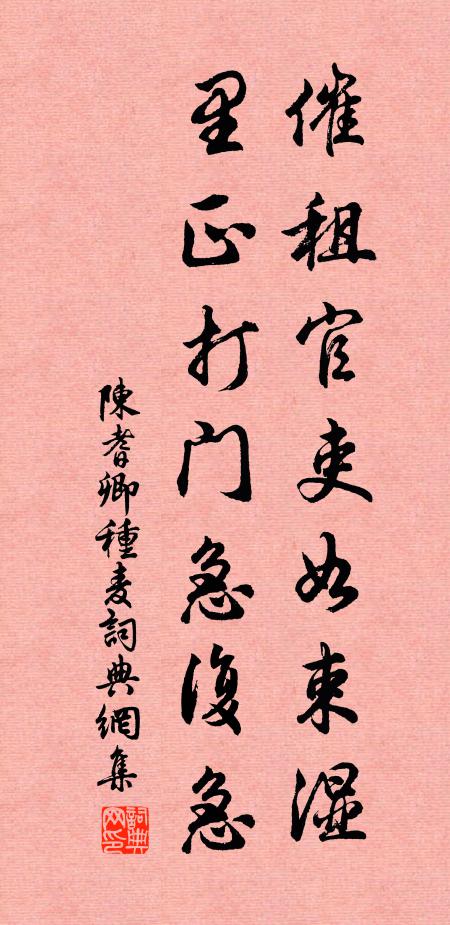 催租官吏如束湿
里正打门急復急
陳耆卿種麦詞典網集
詞典网印